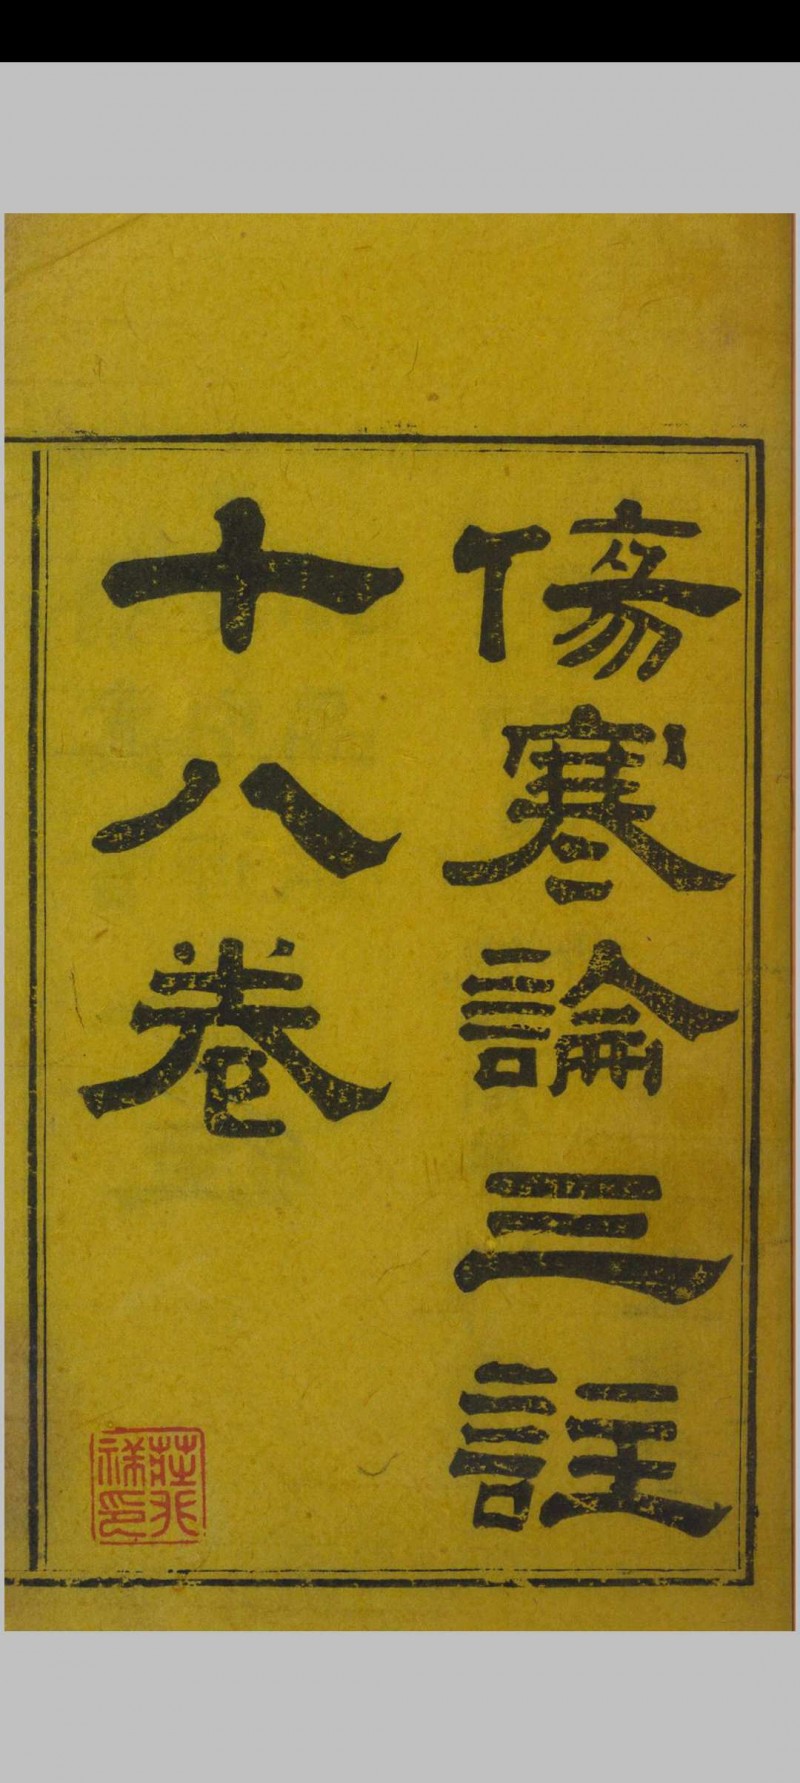 傷寒論三註
十八卷